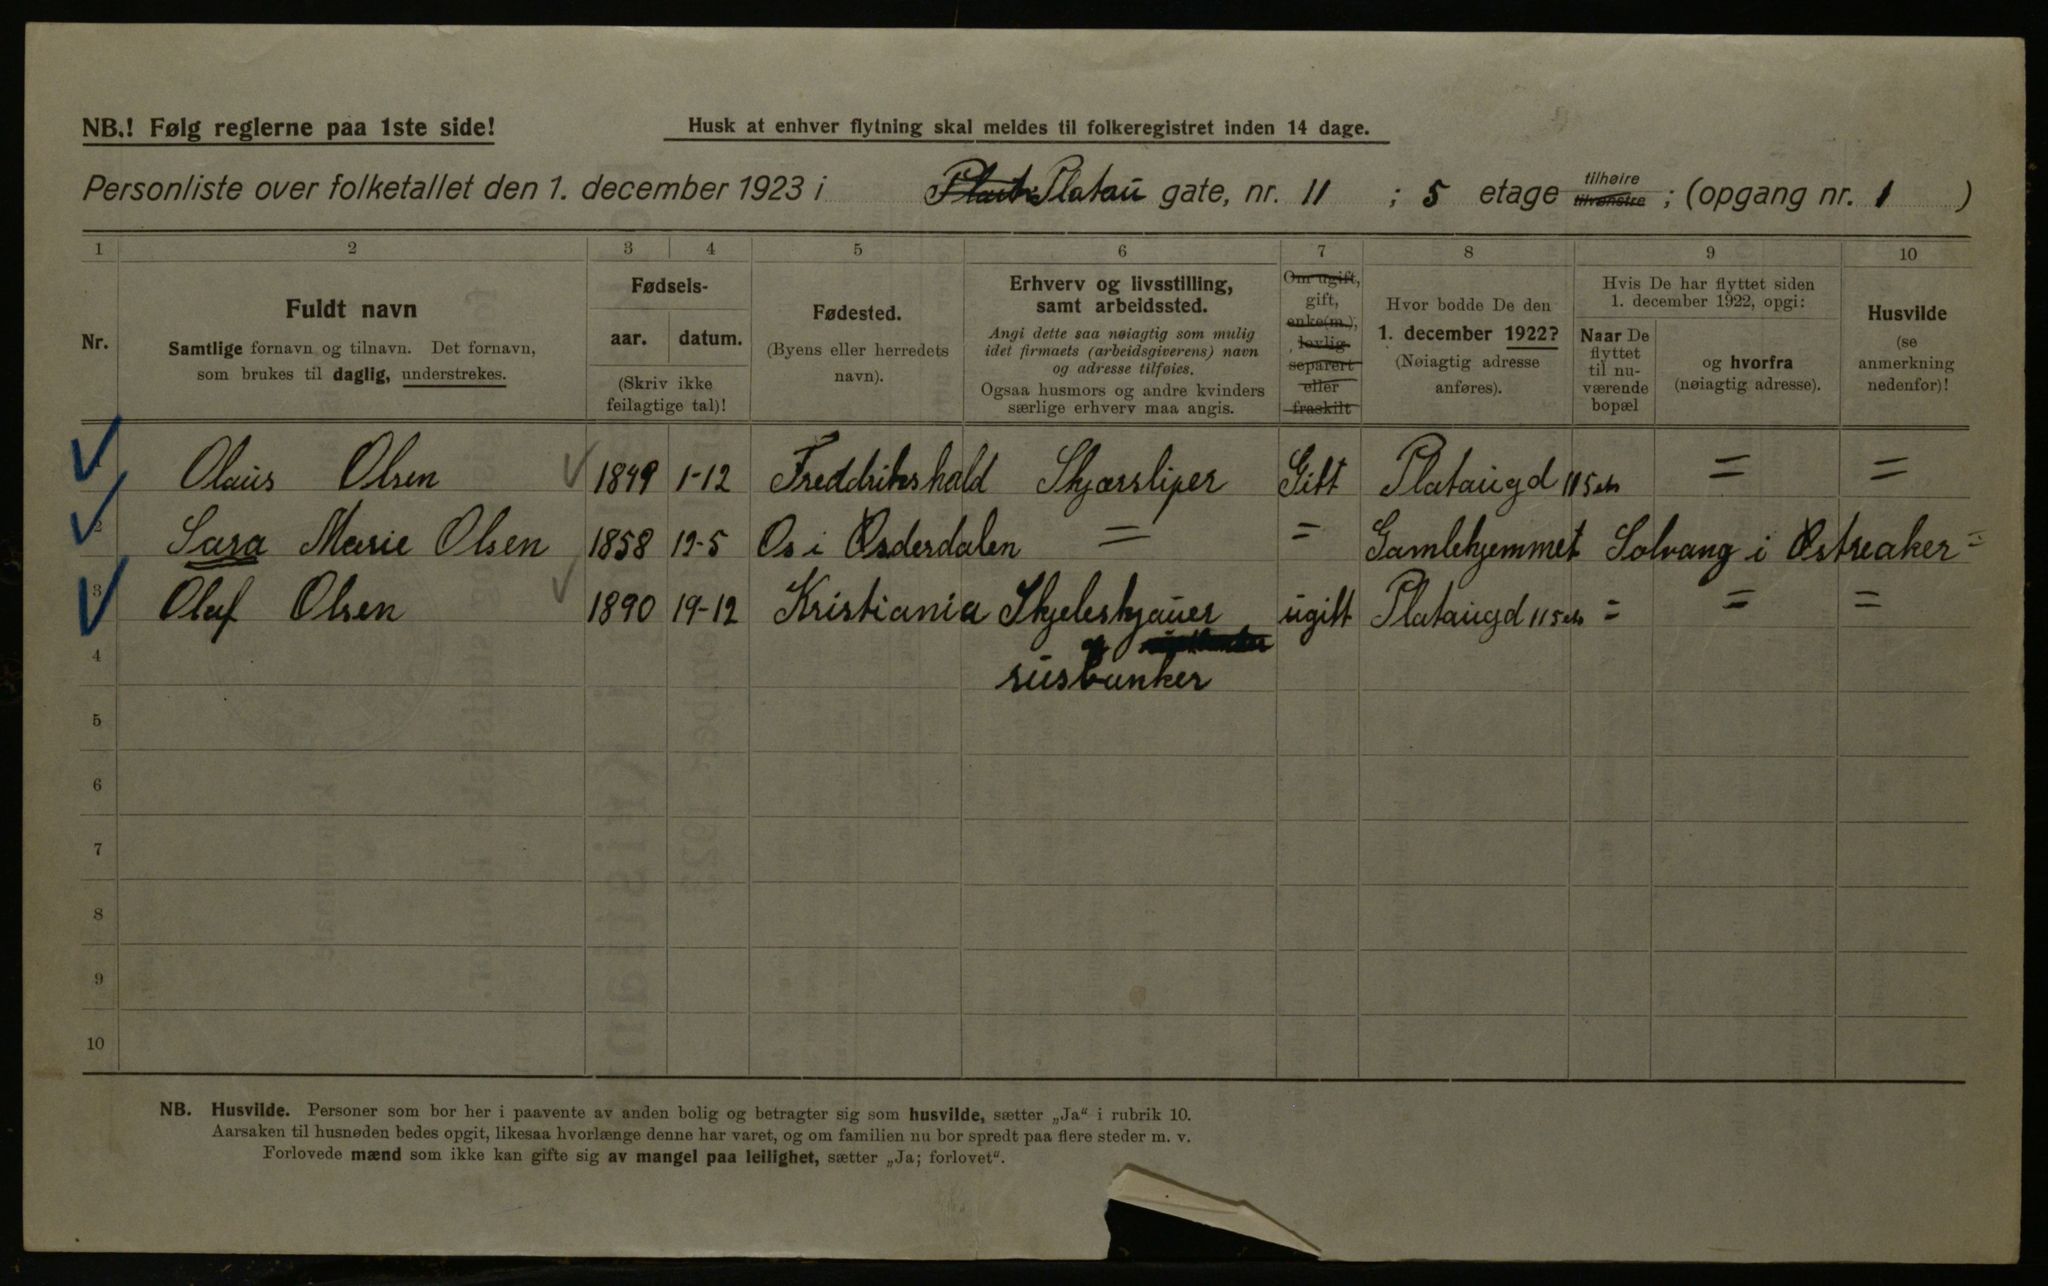 NB.! Følg reglerne paa 1ste side!
Husk at enhver flytning skal meldes til folkeregistret inden 14 dage.
Personliste over folketallet den 1. december 1923 i Platau gate, nr. 11 ; 5 etage tilhøire tilvenstre ; (opgang nr. 1 )
1 2 3 4 5 6 7 8 9 10
Nr.
Fuldt navn
Samtlige fornavn og tilnavn. Det fornavn,
som brukes til daglig, understrekes.
Fødsels-
aar. datum.
(Skriv ikke
feilagtige tal)!
Fødested.
(Byens eller herredets
navn).
Erhverv og livsstilling,
samt arbeidssted.
Angi dette saa nøiagtig som mulig
idet firmaets (arbeidsgiverens) navn
og adresse tilføies.
Ogsaa husmors og andre kvinders
særlige erhverv maa angis.
Om ugift,
gift,
enke(m.),
lovlig
separert
eller
fraskilt
Hvor bodde De den
1. december 1922?
(Nøiagtig adresse
anføres).
Hvis De har flyttet siden
1. december 1922, opgi:
Naar De
flyttet
til nu-
værende
bopæl
og hvorfra
(nøiagtig adresse).
Husvilde
(se
anmerkning
nedenfor)!
Olaus Olsen 1849 1-12 Freddrikshald Skjærsliper Gift Plataugd 11 5 ets = =
2 Sara Marie Olsen 1858 12-5 Os i Østerdalen = = Gamlehjemmet Solvang i Østreaker =
3 Olaf Olsen 1890 19-12 Kristiania Skjeleskjauer ugift Plataugd 11 5 ets = = =
4 og
rusbunker
5
6
7
8
9
10
NB. Husvilde. Personer som bor her i paavente av anden bolig og betragter sig som husvilde, sætter „Ja“ i rubrik 10.
Aarsaken til husnøden bedes opgit, likesaa hvorlænge denne har varet, og om familien nu bor spredt paa flere steder m. v.
Forlovede mænd som ikke kan gifte sig av mangel paa leilighet, sætter „Ja; forlovet“.